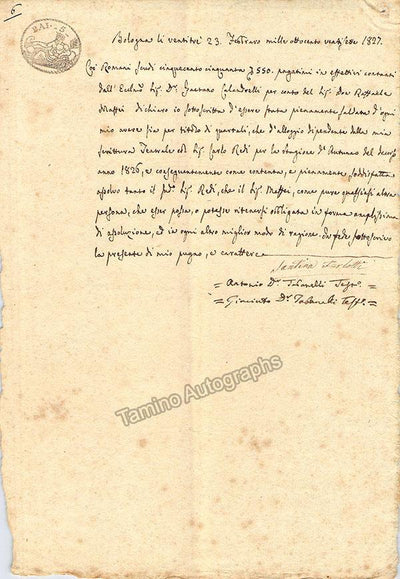 6
BAI. 5
Bologna li ventitré 23. Febbraro mille ottocento ventisette 1827.
Coi Romani Scudi cinquecento cinquanta 550. pagatimi in effettivi contanti
dall' Sig. Dr. Gaetano Calandrelli per conto del Sig. Dre Raffaele
Maffei dichiaro io sottoscritta d'essere stata pienamente saldata d'ogni
mio avere sia per titolo di quartali, che d'alloggio dipendente dalla mia
scrittura Teatrale col Sig. Carlo Redi per la stagione d'Autunno del decorso
anno 1826, e conseguentemente come contenta, e pienamente soddisfatta
assolvo tanto il Sig. Redi, che il Sig. Maffei, come pure qualsiasi altra
persona, che esser possa, o potesse ritenersi obbligata in forma amplissima
di assoluzione, ed in ogni altro miglior modo di ragione. In fede sottoscrivo
la presente di mio pugno, e carattere
Santina Ferlotti
= Antonio Dr. Tabanelli =
= Giacinto Dr. Tabanelli =
Tamino Autographs